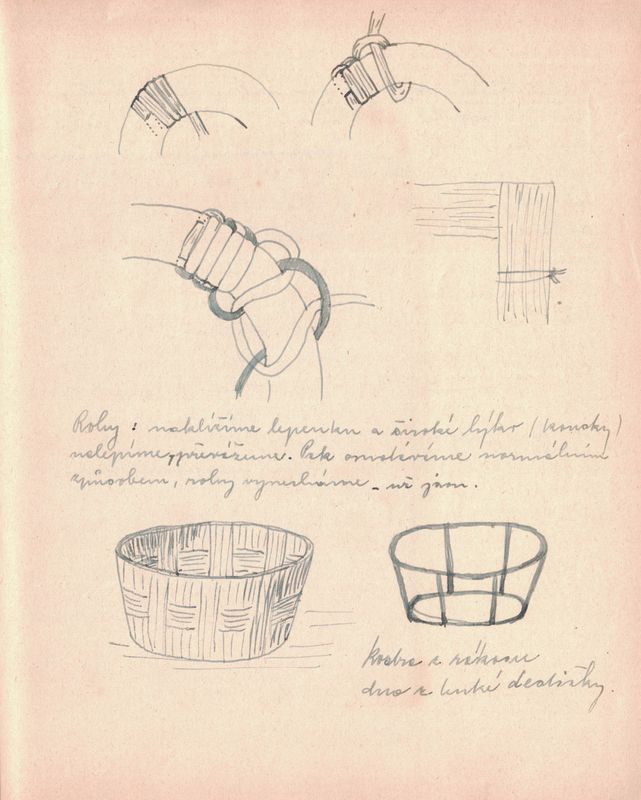 Rohy: naklížíme lepenku a široké lýko (konopky)
nalepíme, převážeme. Pak omotáváme normálním
způsobem, rohy vynecháme - už jsou.
Kostra z rákosu
dno z tenké destičky.